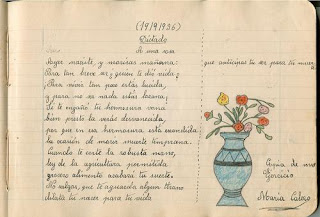 (19/9/1936)
Dictado
A una rosa
Ayer naciste, y morirás mañana:
Para tan breve ser ¿quien te dio vida?
Para vivir tan poco estás lucida,
y para no ser nada estás lozana;
Si te engañó tu hermosura vana
bien presto la verás desvanecida,
por que en esa hermosura está escondida
la ocasión de morir muerte temprana.
Cuando te corte la robusta mano,
ley de la agricultura permitida
grosero aliento acabará tu suerte.
No salgas, que te aguarda algun tirano
dilata tu nacer para tu vida
que anticipas tu ser para tu muerte
Copia de mi
Ejercicio
María